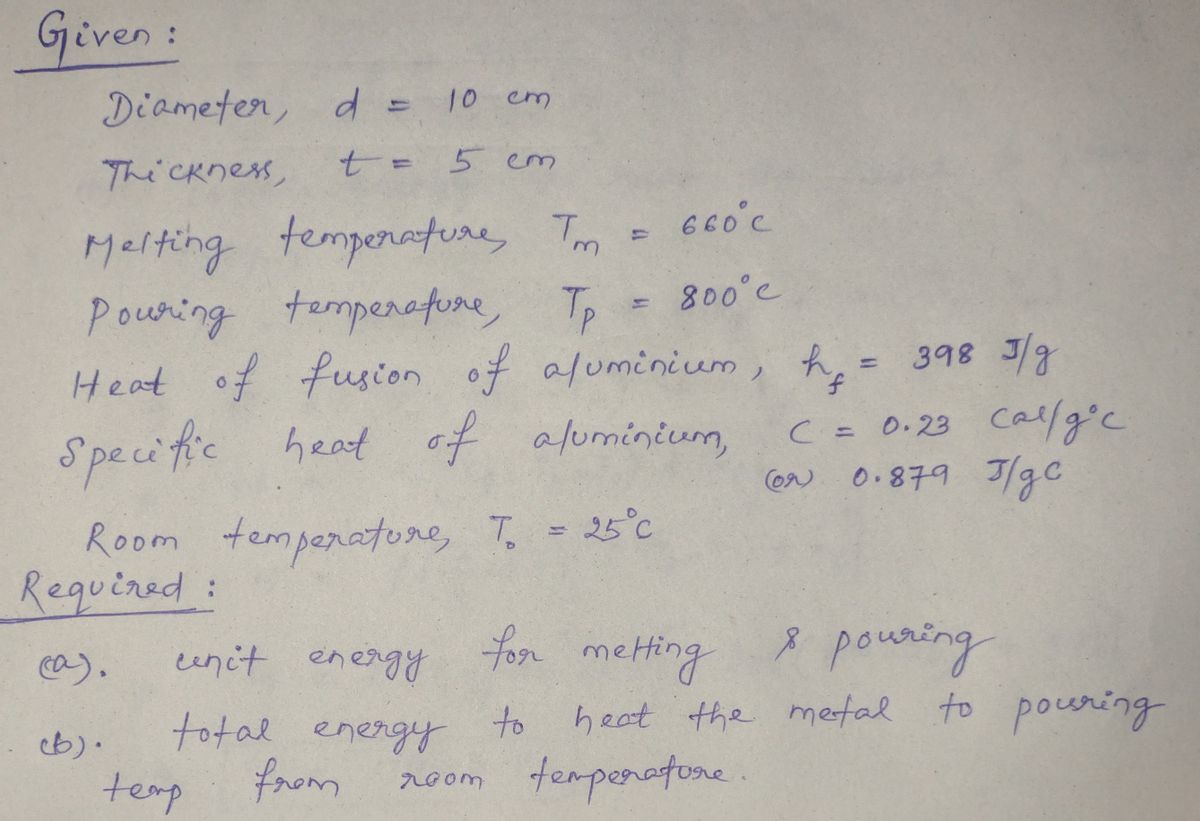 Given :
Diameter, d = 10 cm
Thickness, t = 5 cm
Melting temperature, Tm = 660°C
Pouring temperature, Tp = 800°C
Heat of fusion of aluminium, hf = 398 J/g
Specific heat of aluminium, C = 0.23 Cal/g°C
(or) 0.879 J/gC
Room temperature, T₀ = 25°C
Required :
(a). unit energy for melting & pouring
(b). total energy to heat the metal to pouring
temp from room temperature.